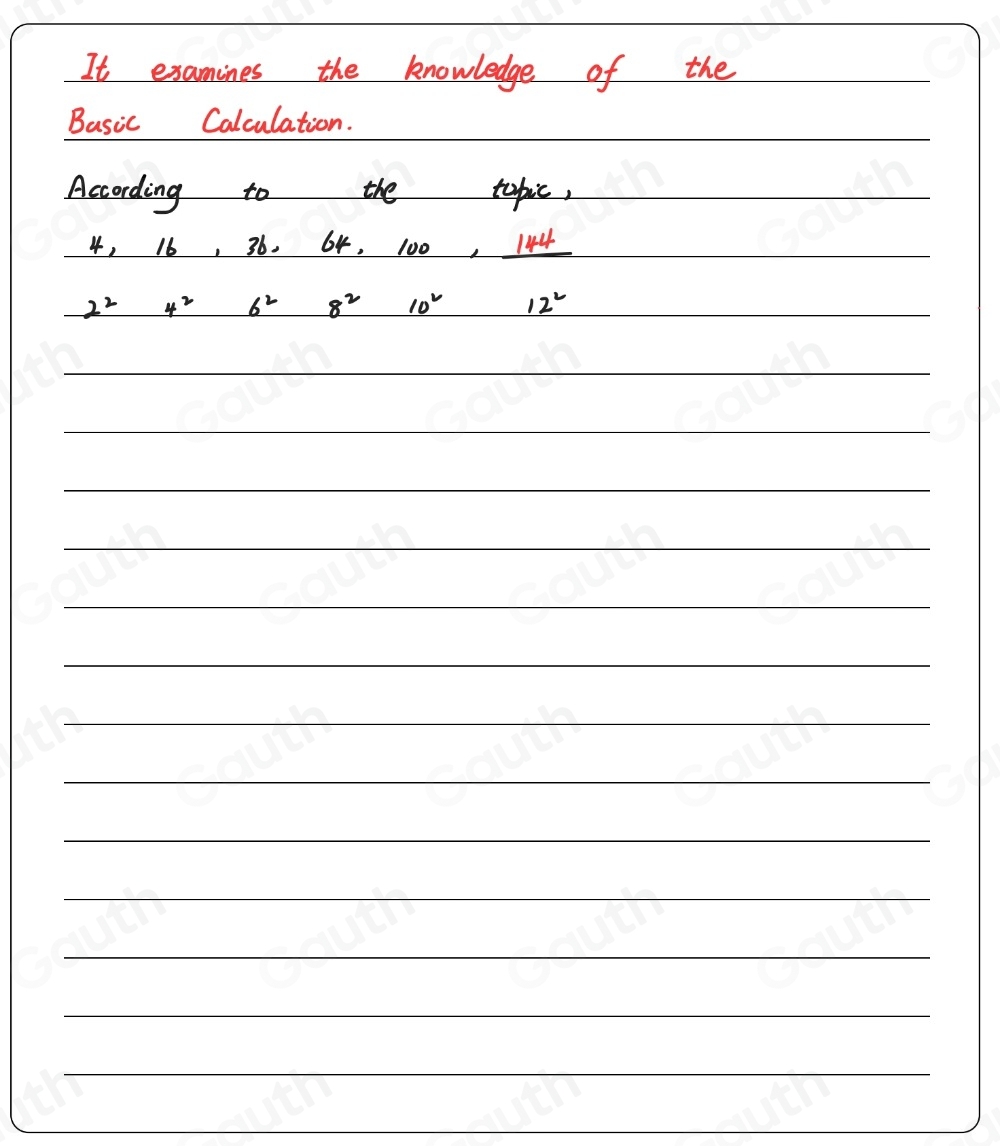 It examines the knowledge of the
Basic Calculation.
According to the topic,
4, 16, 36, 64, 100, 144
2² 4² 6² 8² 10² 12²